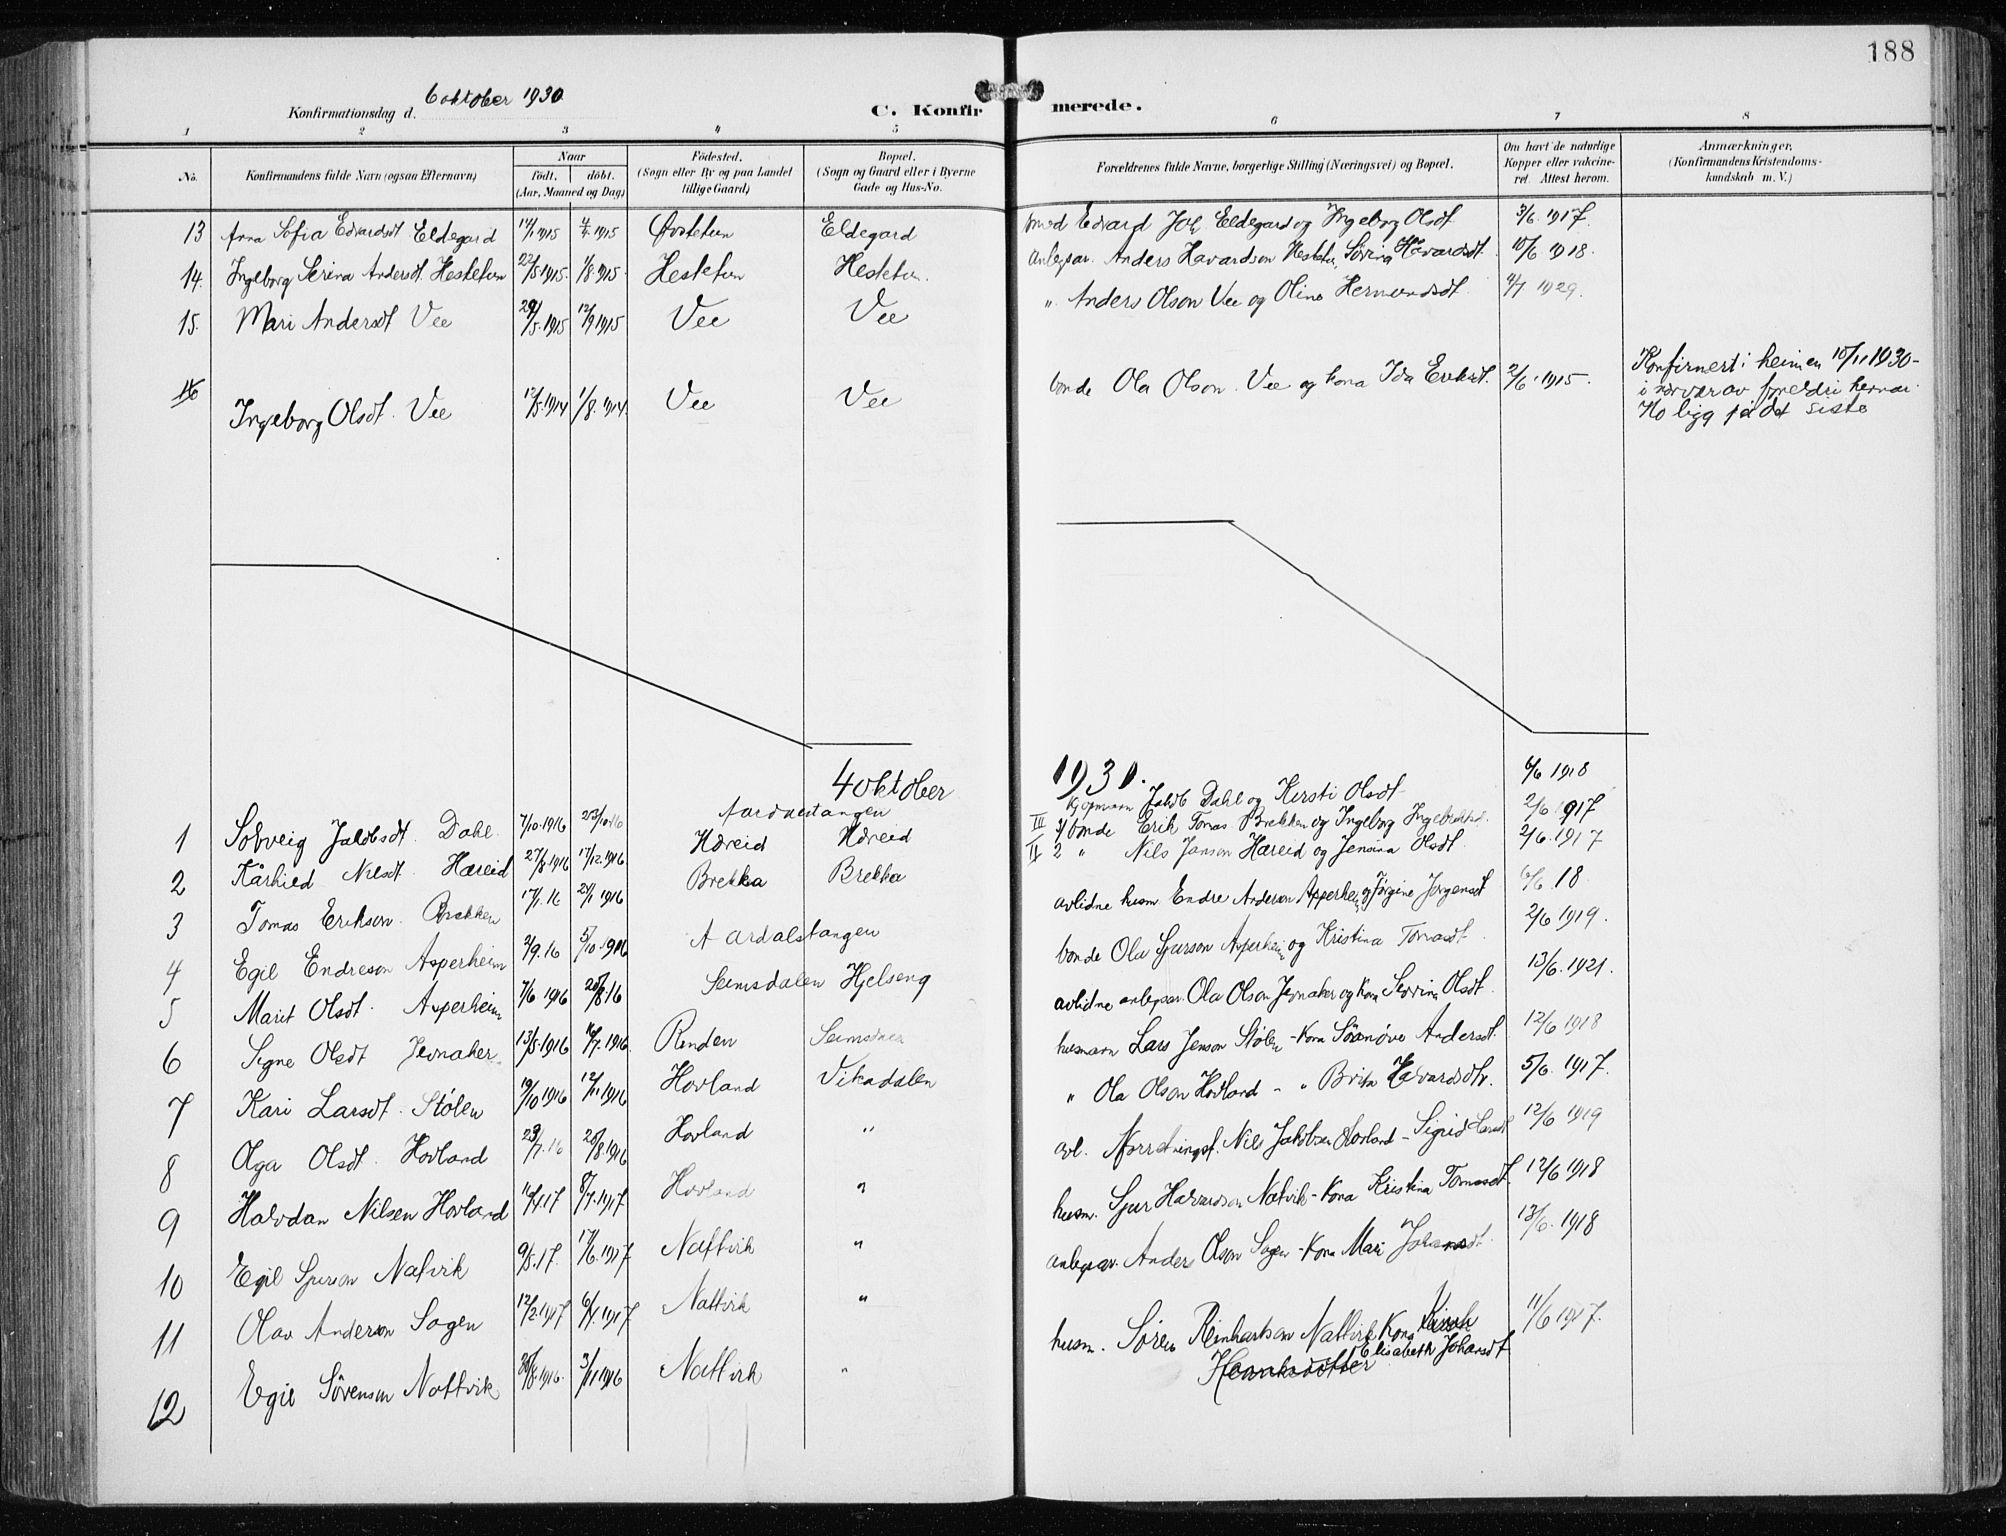 188
Konfirmationsdag d. 6 oktober 1930
C. Konfirmerede.
1 2 3 4 5 6 7 8
No. Konfirmandens fulde Navn (ogsaa Efternavn) Naar födt. döbt. (Aar, Maaned og Dag) Födested. (Sogn eller By og paa Landet tillige Gaard) Bopæl. (Sogn og Gaard eller i Byerne Gade og Hus-No. Forældrenes fulde Navne, borgerlige Stilling (Næringsvei) og Bopæl. Om havt de naturlige Kopper eller vakcineret. Attest herom. Anmærkninger. (Konfirmandens Kristendomskundskab m. V.)
13 Anna Sofia Edvardsdt Eldegard 1915 1915 Eldegard Edvard Joh Eldegard og Ingeborg Olsdt 3/6 1917.
14. Ingeborg Serina Andersdt. Hestetun 22/5 1915. 1/8 1915. Hestetun Hestetun. Anders Havardson Hestetun, Sørina Håvardsdt. 10/6 1918.
15. Mari Andersdt Vee 29/5 1915 12/9 1915 Vee Vee " Anders Olson Vee og Oline Hermundsdt. 1929.
16 Ingeborg Olsdt. Vee 12/5 1914 1/8. 1914. Vee Vee bonde Ola Olson Vee og kona Ida Eriksdt. 2/6 1915. Konfirmert i heimen 10/11 1930-
i nærver av foreldri hennar.
Ho ligg på det siste
4 oktober 1931.
1 Solveig Jakobsdt. Dahl. 7/10 1916 23/10 16 Aardalstangen Jakob Dahl og Kirsti Olsdt 6/6 1918
2 Kårhild Nilsdt. Hæreid 27/8 1916 17/12 1916. Hæreid Hæreid III 3/ bonde Erik Tomas Brekken og Ingeborg 2/6 1917
3 Tomas Erikson Brekken 17/1. 16 21/1 1916 Brekka Brekka II 2 " Nils Janson Hæreid og Jensina Olsdt. 2/6. 1917
4 Egil Endreson Asperheim 2/9. 16 5/10 1916 Aardalstangen avlidne husm Endre Anderson Asperheim og Jørgine Jørgensdt 6/6. 18
5 Marit Olsdt. Asperheim 7/6 1916 20/8 16 Seimsdalen Hjelseng bonde Ola Sjurson Asperheim og Kristina Tomasdt. 2/6 1919.
6 Signe Olsdt Jevnaker 13/5 1916 16/7. 1916. Renden avlidne Ola Olson Jevnaker og kona Olsdt. 13/6. 1921.
7 Kari Larsdt. Stølen 19/10 1916 12/11 1916 Hovland Vikadalen husmann Lars Jenson Stølen - kona Sønnøve Andersdt. 12/6 1918
8 Olga Olsdt. Hovland 23/7. 16 20/8 1916 Hovland " " Ola Olson Hovland - " Brita Havardsdtr. 5/6. 1917.
9 Halvdan Nilsen Hovland 17 1917 Hovland " avl. Nils Jakobsen Hovland - Sigrid Larsdt 12/6 1919
10 Egil Sjurson Natvik 9/5. 17. 17/6. 1917 Nattvik " husm. Sjur Havardson Natvik - kona Kristina Tomasdt. 12/6 1918
11 Olav Anderson Sagen 12/2. 1917 1917 Nattvik " Anders Olson Sagen - kona Mari Johansdt. 13/6. 1918
12 Egil Sørenson Nattvik 1916. 3/11 1916 Nattvik " husm. Søren Reinhartson Nattvik kona 11/6 1917.
Elisabeth Johansdt
Henriksdotter